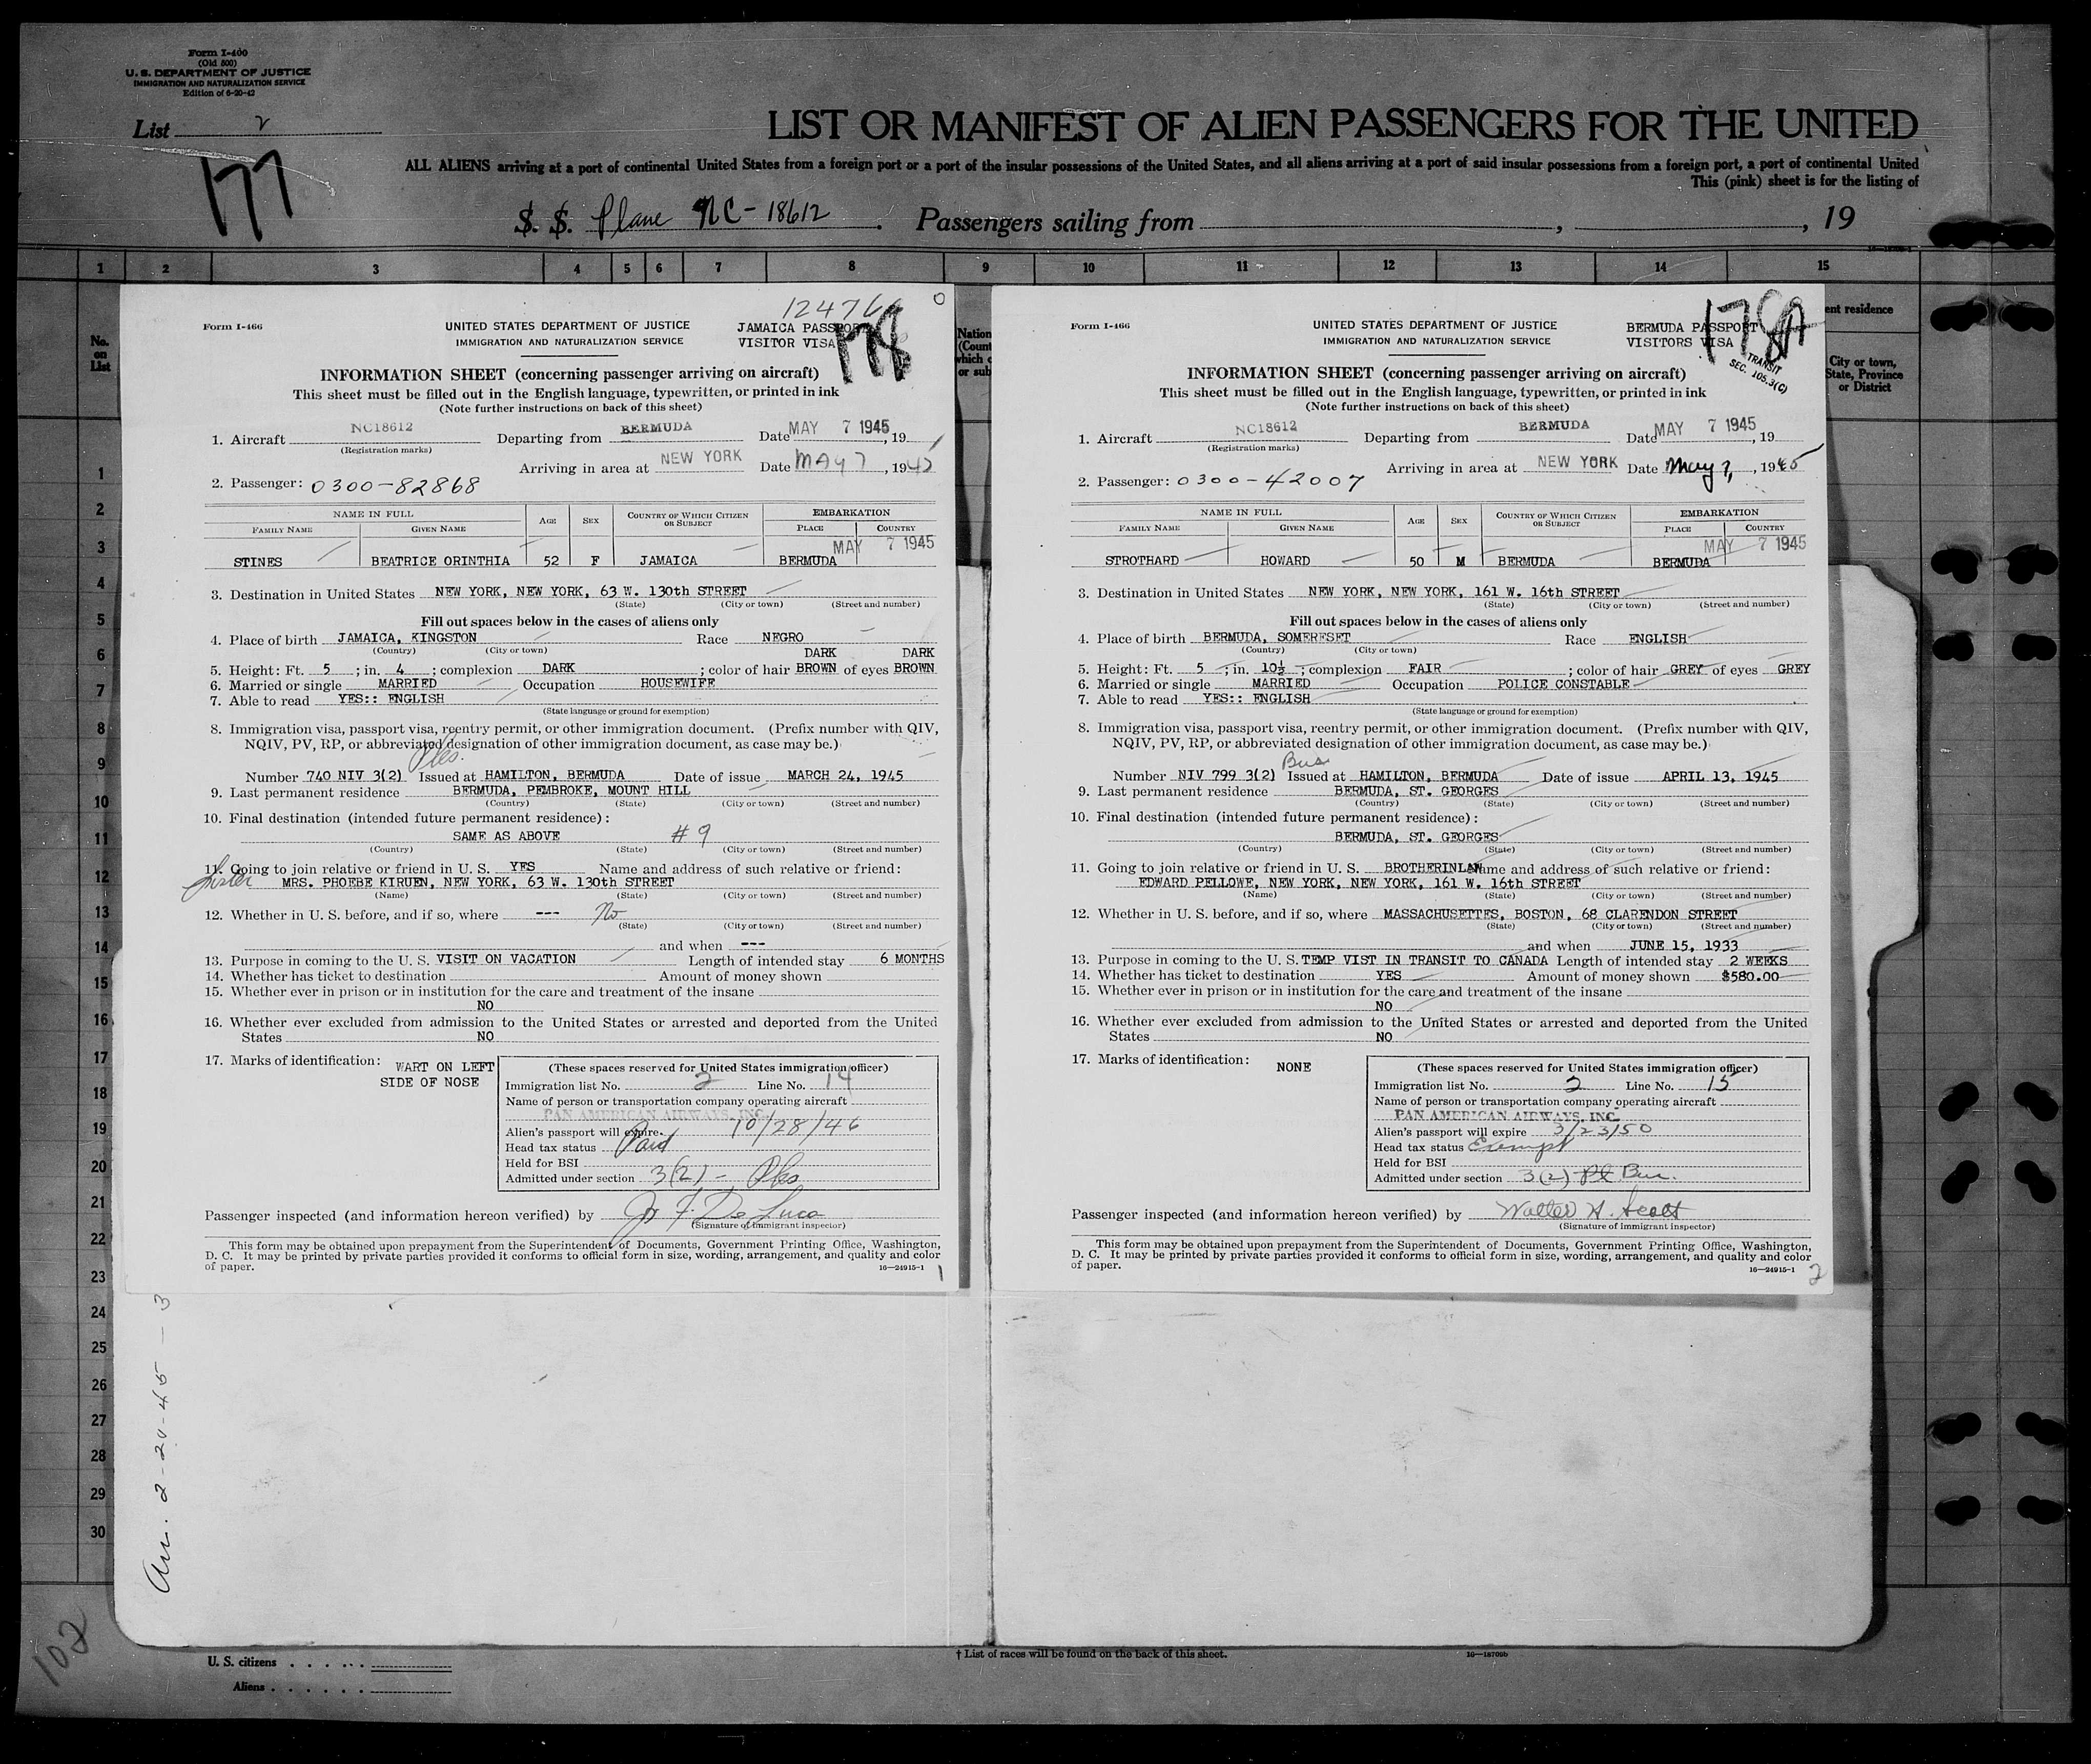 Form I-400
(Old 500)
U. S. DEPARTMENT OF JUSTICE
IMMIGRATION AND NATURALIZATION SERVICE
Edition of 6-20-42
List 2
177
LIST OR MANIFEST OF ALIEN PASSENGERS FOR THE UNITED
ALL ALIENS arriving at a port of continental United States from a foreign port or a port of the insular possessions of the United States, and all aliens arriving at a port of said insular possessions from a foreign port, a port of continental United
This (pink) sheet is for the listing of
S. S. Plane NC-18612. Passengers sailing from , , 19
1 2 3 4 5 6 7 8 9 10 11 12 13 14 15
No. on List
Nation
(Count
which c
or sub
ent residence
City or town,
State, Province
or District
1
2
3
4
5
6
7
8
9
10
11
12
13
14
15
16
17
18
19
20
21
22
23
24
25
26
27
28
29
30
12476
Form I-466
UNITED STATES DEPARTMENT OF JUSTICE
IMMIGRATION AND NATURALIZATION SERVICE
JAMAICA PASSPORT
VISITOR VISA
178
INFORMATION SHEET (concerning passenger arriving on aircraft)
This sheet must be filled out in the English language, typewritten, or printed in ink
(Note further instructions on back of this sheet)
1. Aircraft NC18612 Departing from BERMUDA Date MAY 7 1945, 19
(Registration marks)
Arriving in area at NEW YORK Date MAY 7, 1945
2. Passenger: 0300-82868
NAME IN FULL AGE SEX COUNTRY OF WHICH CITIZEN OR SUBJECT EMBARKATION
FAMILY NAME GIVEN NAME PLACE COUNTRY
MAY 7 1945
STINES BEATRICE ORINTHIA 52 F JAMAICA BERMUDA
3. Destination in United States NEW YORK, NEW YORK, 63 W. 130th STREET
(State) (City or town) (Street and number)
Fill out spaces below in the cases of aliens only
4. Place of birth JAMAICA, KINGSTON Race NEGRO
(Country) (City or town)
DARK DARK
5. Height: Ft. 5 ; in. 4 ; complexion DARK ; color of hair BROWN of eyes BROWN
6. Married or single MARRIED Occupation HOUSEWIFE
7. Able to read YES:: ENGLISH
(State language or ground for exemption)
8. Immigration visa, passport visa, reentry permit, or other immigration document. (Prefix number with QIV,
NQIV, PV, RP, or abbreviated designation of other immigration document, as case may be.)
Number 740 NIV 3(2) Issued at HAMILTON, BERMUDA Date of issue MARCH 24, 1945
9. Last permanent residence BERMUDA, PEMBROKE, MOUNT HILL
(Country) (State) (City or town) (Street and number)
10. Final destination (intended future permanent residence):
SAME AS ABOVE # 9
(Country) (State) (City or town) (Street and number)
11. Going to join relative or friend in U. S. YES Name and address of such relative or friend:
Sister MRS. PHOEBE KIRUEN, NEW YORK, 63 W. 130th STREET
(Name) (State) (City or town) (Street and number)
12. Whether in U. S. before, and if so, where --- No
(State) (City or town) (Street and number)
and when ---
13. Purpose in coming to the U. S. VISIT ON VACATION Length of intended stay 6 MONTHS
14. Whether has ticket to destination Amount of money shown
15. Whether ever in prison or in institution for the care and treatment of the insane
NO
16. Whether ever excluded from admission to the United States or arrested and deported from the United
States NO
17. Marks of identification: WART ON LEFT
SIDE OF NOSE
(These spaces reserved for United States immigration officer)
Immigration list No. 2 Line No. 14
Name of person or transportation company operating aircraft
PAN AMERICAN AIRWAYS, INC.
Alien's passport will expire 10/28/46
Head tax status Paid
Held for BSI
Admitted under section 3(2) - Pls
Passenger inspected (and information hereon verified) by Jos F. De Luca
(Signature of immigrant inspector)
This form may be obtained upon prepayment from the Superintendent of Documents, Government Printing Office, Washington,
D. C. It may be printed by private parties provided it conforms to official form in size, wording, arrangement, and quality and color
of paper. 16—24915-1
1
Form I-466
UNITED STATES DEPARTMENT OF JUSTICE
IMMIGRATION AND NATURALIZATION SERVICE
BERMUDA PASSPORT
VISITORS VISA
178A
TRANSIT
SEC. 105.3(C)
INFORMATION SHEET (concerning passenger arriving on aircraft)
This sheet must be filled out in the English language, typewritten, or printed in ink
(Note further instructions on back of this sheet)
1. Aircraft NC18612 Departing from BERMUDA Date MAY 7 1945, 19
(Registration marks)
Arriving in area at NEW YORK Date May 7, 1945
2. Passenger: 0300-42007
NAME IN FULL AGE SEX COUNTRY OF WHICH CITIZEN OR SUBJECT EMBARKATION
FAMILY NAME GIVEN NAME PLACE COUNTRY
MAY 7 1945
STROTHARD HOWARD 50 M BERMUDA BERMUDA
3. Destination in United States NEW YORK, NEW YORK, 161 W. 16th STREET
(State) (City or town) (Street and number)
Fill out spaces below in the cases of aliens only
4. Place of birth BERMUDA, SOMERESET Race ENGLISH
(Country) (City or town)
5. Height: Ft. 5 ; in. 10½ ; complexion FAIR ; color of hair GREY of eyes GREY
6. Married or single MARRIED Occupation POLICE CONSTABLE
7. Able to read YES:: ENGLISH
(State language or ground for exemption)
8. Immigration visa, passport visa, reentry permit, or other immigration document. (Prefix number with QIV,
NQIV, PV, RP, or abbreviated designation of other immigration document, as case may be.)
Bus
Number NIV 799 3(2) Issued at HAMILTON, BERMUDA Date of issue APRIL 13, 1945
9. Last permanent residence BERMUDA, ST. GEORGES
(Country) (State) (City or town) (Street and number)
10. Final destination (intended future permanent residence):
BERMUDA, ST. GEORGES
(Country) (State) (City or town) (Street and number)
11. Going to join relative or friend in U. S. BROTHERINLAW Name and address of such relative or friend:
EDWARD PELLOWE, NEW YORK, NEW YORK, 161 W. 16th STREET
(Name) (State) (City or town) (Street and number)
12. Whether in U. S. before, and if so, where MASSACHUSETTES, BOSTON, 68 CLARENDON STREET
(State) (City or town) (Street and number)
and when JUNE 15, 1933
13. Purpose in coming to the U. S. TEMP VIST IN TRANSIT TO CANADA Length of intended stay 2 WEEKS
14. Whether has ticket to destination YES Amount of money shown $580.00
15. Whether ever in prison or in institution for the care and treatment of the insane
NO
16. Whether ever excluded from admission to the United States or arrested and deported from the United
States NO
17. Marks of identification: NONE
(These spaces reserved for United States immigration officer)
Immigration list No. 2 Line No. 15
Name of person or transportation company operating aircraft
PAN AMERICAN AIRWAYS, INC
Alien's passport will expire 3/23/50
Head tax status Exempt
Held for BSI
Admitted under section 3(2) Pl Bus.
Passenger inspected (and information hereon verified) by Walter H. Scott
(Signature of immigrant inspector)
This form may be obtained upon prepayment from the Superintendent of Documents, Government Printing Office, Washington,
D. C. It may be printed by private parties provided it conforms to official form in size, wording, arrangement, and quality and color
of paper. 16—24915-1
2
2-20-45 - 3
102
U. S. citizens
Aliens
† List of races will be found on the back of this sheet.
16—18709b